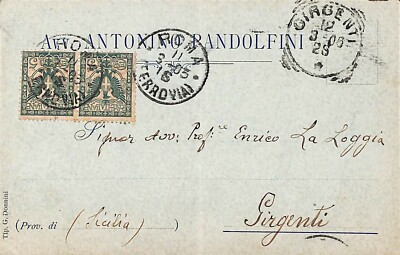 Avv. ANTONIO PANDOLFINI
GIRGENTI
12
3-06
28
ROMA
11
3-06
(FERROVIA)
Signor Avv. Profre Enrico La Loggia
Girgenti
(Prov. di (Sicilia)
Tip. G. Donnini